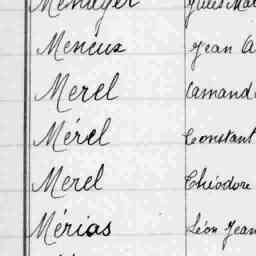 Menager Jules
Meneux Jean
Merel Armand
Mérel Constant
Merel Théodore
Mérias Léon Jean